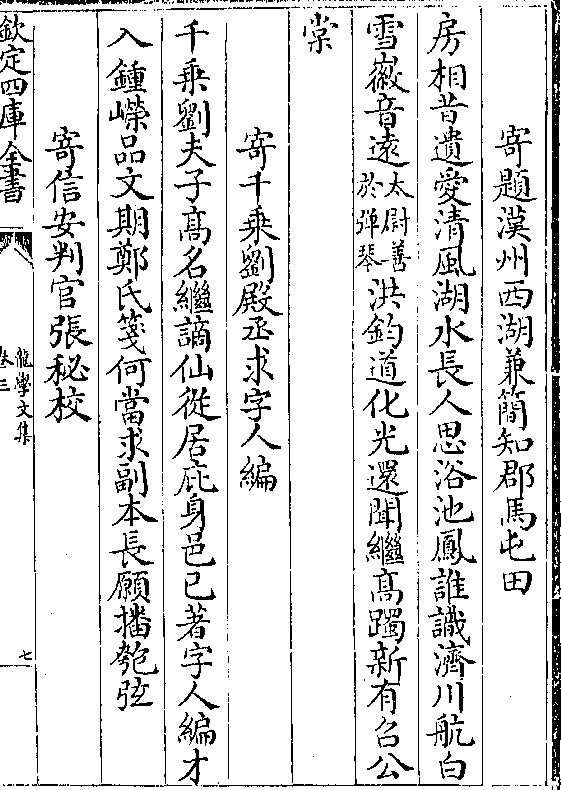 寄題漢州西湖兼簡知郡馬屯田
房相昔遺愛清風湖水長人思浴池鳳誰識濟川航白
雪徽音遠太尉善於彈琴洪鈞道化光還聞繼髙躅新有召公
棠
寄千乗劉殿丞求字人編
千乗劉夫子髙名繼謫仙從居庇身邑已著字人編才
入鍾嶸品文期鄭氏箋何當求副本長願播匏弦
寄信安判官張秘校
欽定四庫全書
龍學文集
卷三
七